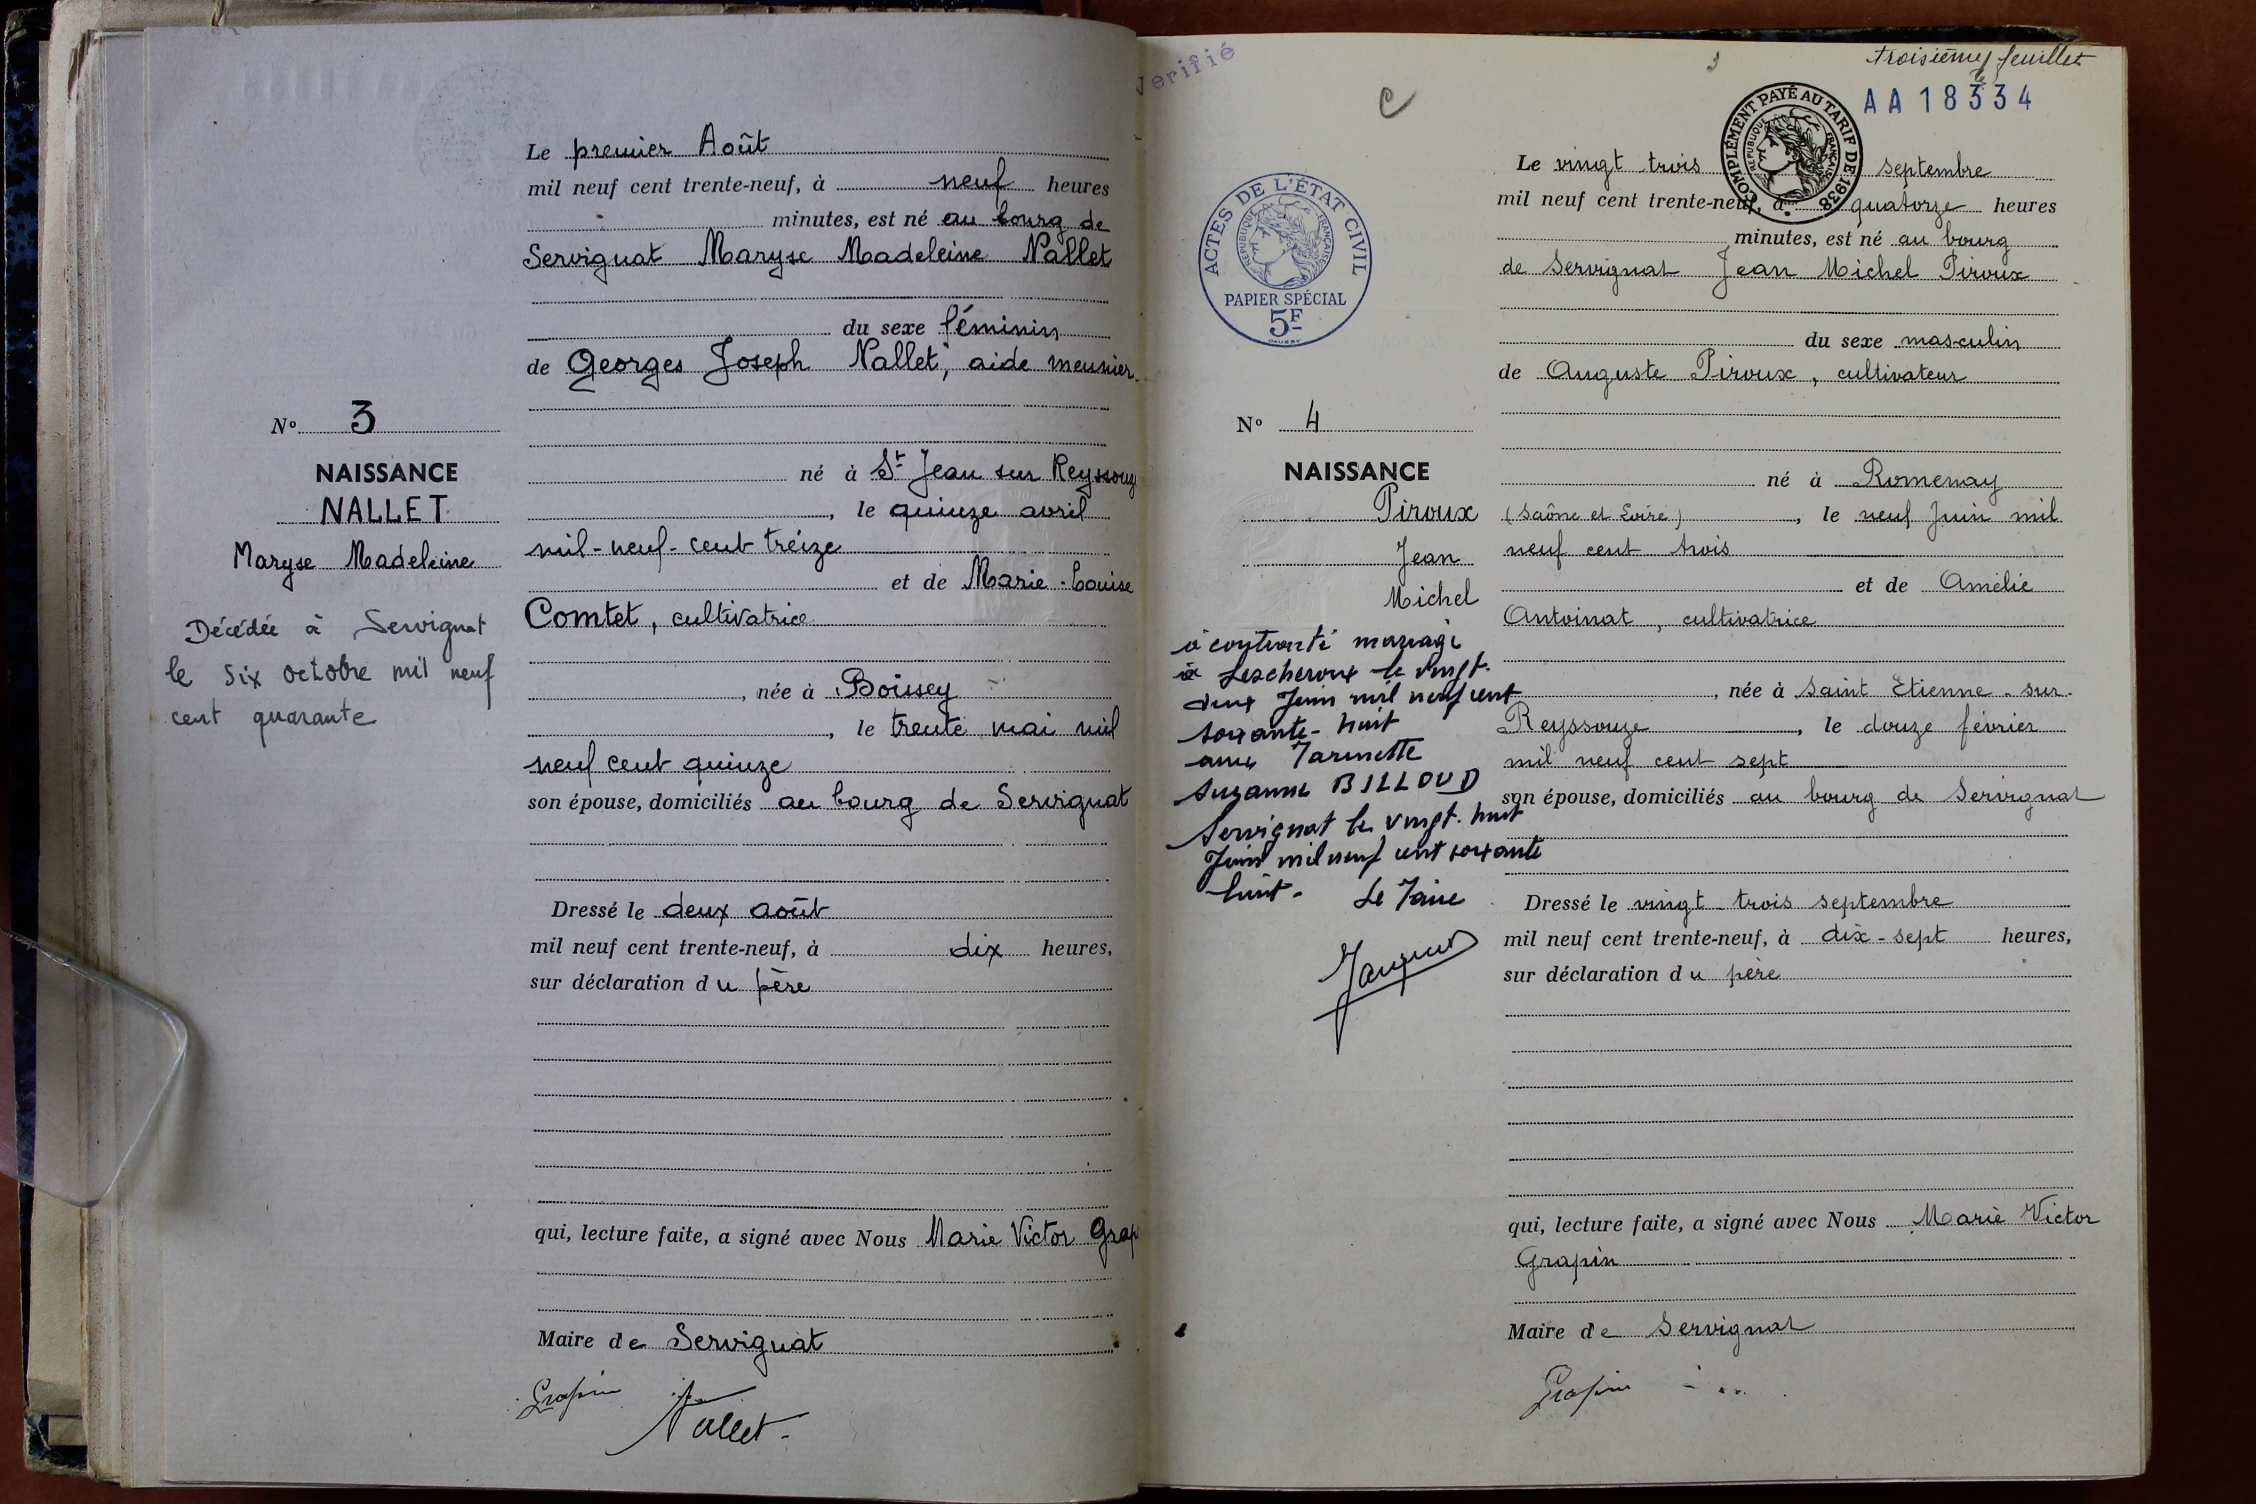 Le premier Août
mil neuf cent trente-neuf, à neuf heures
minutes, est né au bourg de
Servignat Maryse Madeleine Nallet
du sexe féminin
de Georges Joseph Nallet, aide meunier
N° 3
NAISSANCE
NALLET
Maryse Madeleine
Décédée à Servignat
le six octobre mil neuf
cent quarante
né à St Jean sur Reyssouze
, le quinze avril
mil-neuf-cent treize
et de Marie-Louise
Comtet, cultivatrice
, née à Boissey
, le trente mai mil
neuf cent quinze
son épouse, domiciliés au bourg de Servignat
Dressé le deux août
mil neuf cent trente-neuf, à dix heures,
sur déclaration du père
qui, lecture faite, a signé avec Nous Marie Victor Grap
Maire de Servignat
Grapin
Nallet
Verifié
C
3
troisième feuillet
AA 18334
COMPLÉMENT PAYÉ AU TARIF DE 1938
RÉPUBLIQUE FRANÇAISE
ACTES DE L'ÉTAT CIVIL
RÉPUBLIQUE FRANÇAISE
PAPIER SPÉCIAL
5F
Le vingt trois septembre
mil neuf cent trente-neuf, à quatorze heures
minutes, est né au bourg
de Servignat Jean Michel Piroux
du sexe masculin
de Auguste Piroux, cultivateur
N° 4
NAISSANCE
Piroux
Jean
Michel
a contracté mariage
à Lescheroux le vingt-
deux Juin mil neuf cent
soixante-huit
avec
Suzanne BILLOUD
Servignat le vingt-huit
Juin mil neuf cent soixante
huit- Le Maire
né à Romenay
(Saône et Loire), le neuf Juin mil
neuf cent trois
et de Amélie
Antoinat, cultivatrice
, née à Saint Etienne-sur-
Reyssouze, le douze février
mil neuf cent sept
son épouse, domiciliés au bourg de Servignat
Dressé le vingt-trois septembre
mil neuf cent trente-neuf, à dix-sept heures,
sur déclaration du père
qui, lecture faite, a signé avec Nous Marie Victor
Grapin
Maire de Servignat
Grapin